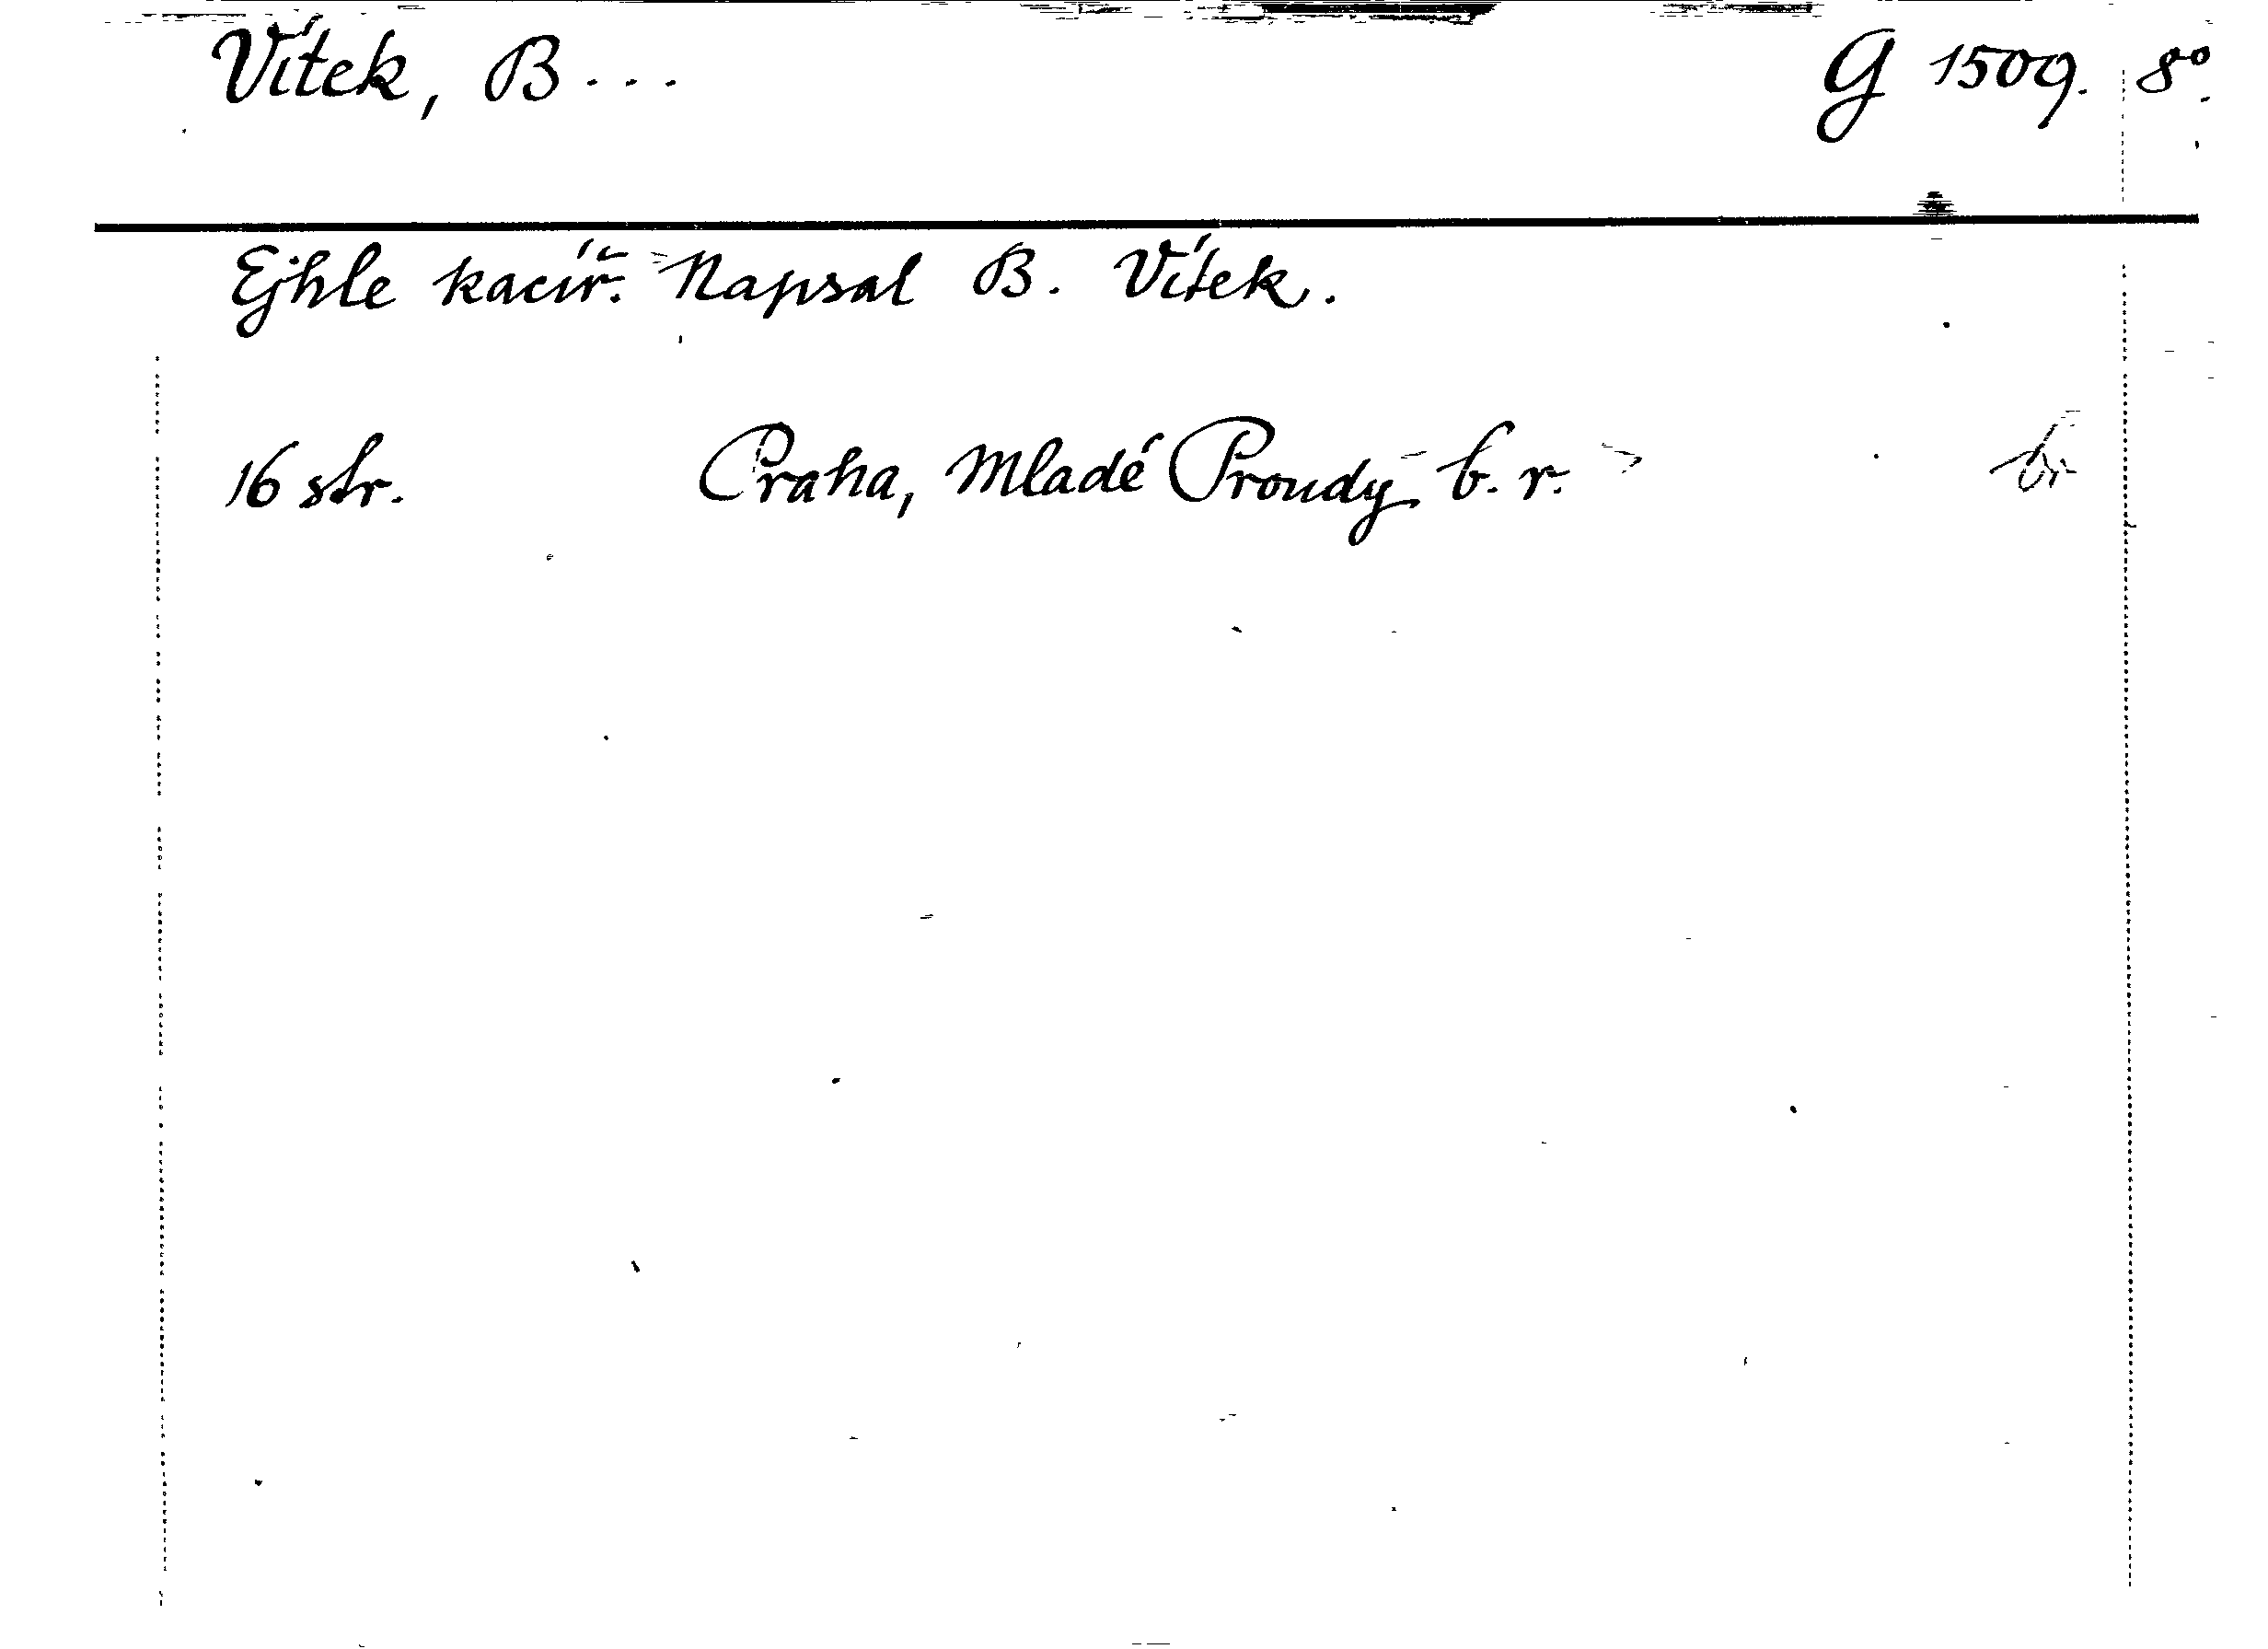 Vítek, B... G 1509. 8°.
Ejhle kacíř. Napsal B. Vítek.
16 str. Praha, Mladé Proudy b. r. br